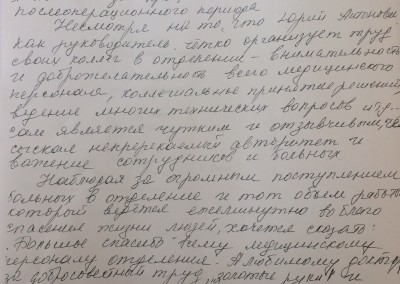 послеоперационного периода
Несмотря на то, что Юрий Антонови
как руководитель чётко организует труд
своих коллег в отделение - внимательность
и доброжелательность всего медицинского
персонала, коллегиальное принятие решений,
ведение многих технических вопросов и др...
сам является чутким и отзывчивым, че
сыскал непререкаемый авторитет и
важение сотрудников и больных
Наблюдая за огромным поступлением
больных в отделение и тот объем работы
которой ведется ежеминутно во благо
спасения жизни людей, хочется сказать:
"Большое спасибо" всему медицинскому
персоналу отделения. А любимому доктору
за добросовестный труд, "золотые руки" и